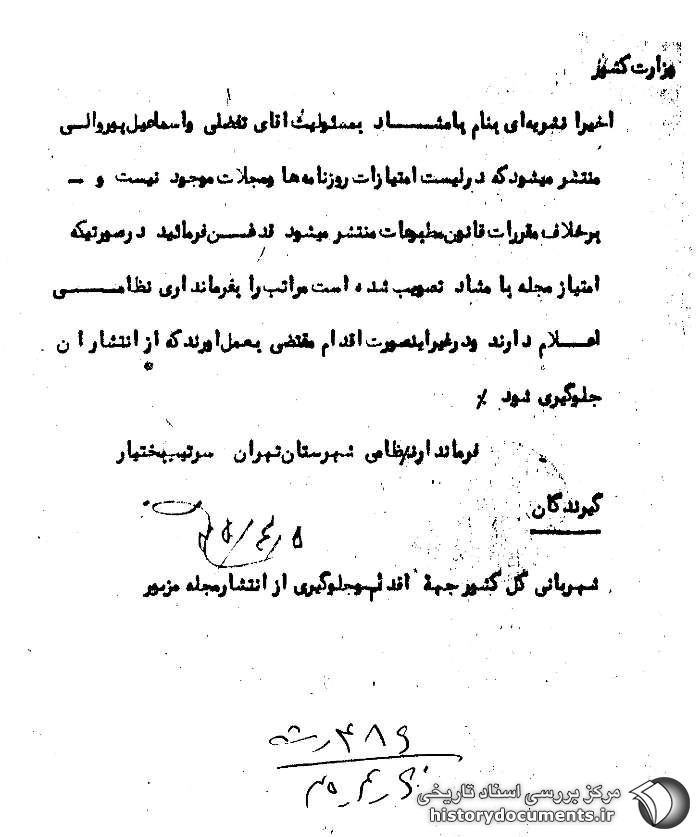 وزارت کشور
اخیرا نشریه‌ای بنام بامشـــاد بمسئولیت اقای تفضلی واسماعیل پوروالــی
منتشر میشودکه درلیست امتیازات روزنامه‌ها ومجلات موجود نیست و ــ
برخلاف مقررات قانون مطبوعات منتشر میشود قدغــن فرمائید درصورتیکه
امتیاز مجله با مشاد تصویب شده است مراتب را بفرمانداری نظامــی
اعــلام دارند ودرغیراینصورت اقدام مقتضی بعمل اورندکه از انتشار ان
جلوگیری شود
فرماندار نظامی شهرستان تهران سرتیپ بختیار
گیرندگان
شهربانی کل کشور جهة اقدام وجلوگیری از انتشار مجله مزبور
مرکز بررسی اسناد تاریخی
historydocuments.ir